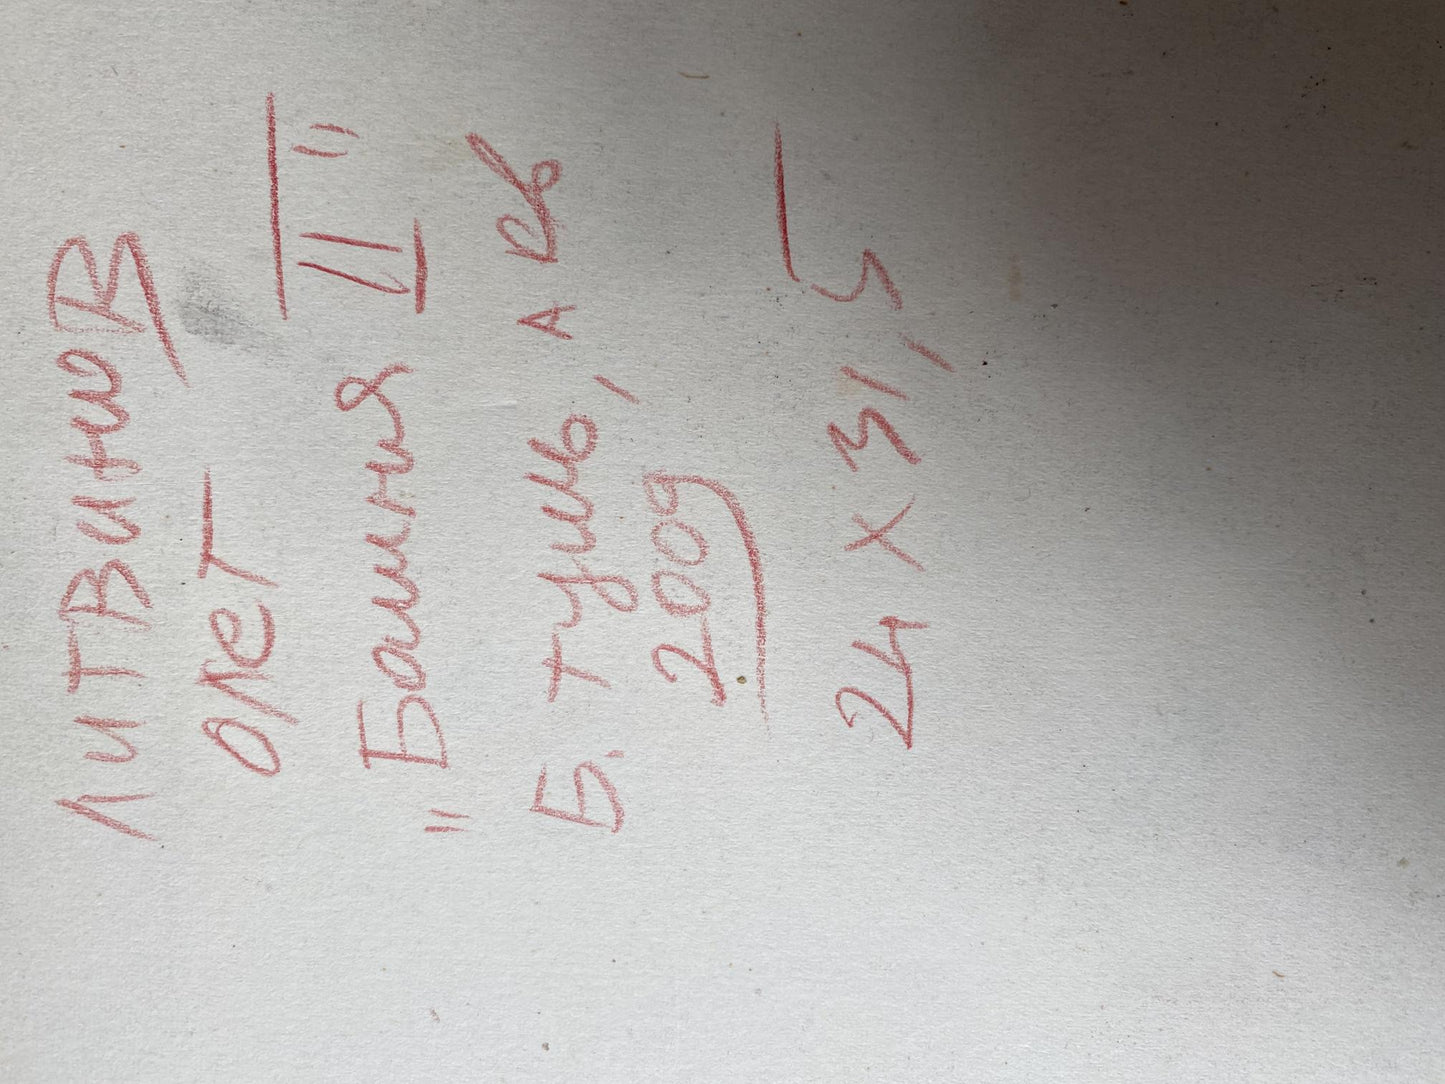 ЛИТВИНОВ
ОЛЕГ
"Башня II"
Б. Тушь, АКВ
2009
24 х 31,5